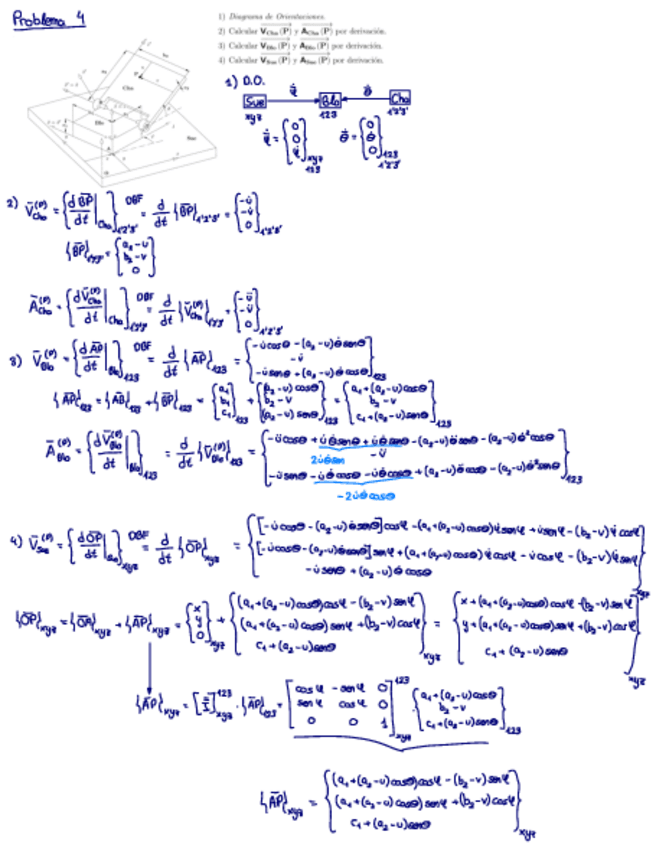 Problema 4
1) Diagrama de Orientaciones.
2) Calcular V_Cha(P) y A_Cha(P) por derivación.
3) Calcular V_Blo(P) y A_Blo(P) por derivación.
4) Calcular V_Sue(P) y A_Sue(P) por derivación.
Cha
Sue
1) D.O.
Sue →(φ̇) Blo ←(θ̇) Cha
xyz 123 1'2'3'
φ̇ = {0; 0; φ̇}_xyz,123 θ̇ = {0; θ̇; 0}_123,1'2'3'
2) V̄_Cha^(P) = {dB̄P/dt|_Cha}_1'2'3' DBF = d/dt {B̄P}_1'2'3' = {-u̇; -v̇; 0}_1'2'3'
{B̄P}_1'2'3' = {a₂-u; b₂-v; 0}
Ā_Cha^(P) = {dV̄_Cha^(P)/dt|_Cha}_1'2'3' DBF = d/dt {V̄_Cha^(P)}_1'2'3' = {-ü; -v̈; 0}_1'2'3'
3) V̄_Blo^(P) = {dĀP/dt|_Blo}_123 DBF = d/dt {ĀP}_123 = {-u̇cosθ-(a₂-u)θ̇senθ; -v̇; -u̇senθ+(a₂-u)θ̇cosθ}_123
{ĀP}_123 = {ĀB}_123 + {B̄P}_123 = {a₁; b₁; c₁}_123 + {(a₂-u)cosθ; b₂-v; (a₂-u)senθ}_123 = {a₁+(a₂-u)cosθ; b₂-v; c₁+(a₂-u)senθ}_123
Ā_Blo^(P) = {dV̄_Blo^(P)/dt|_Blo}_123 = d/dt {V̄_Blo^(P)}_123 = {-ücosθ+u̇θ̇senθ+u̇θ̇senθ-(a₂-u)θ̈senθ-(a₂-u)θ̇²cosθ; -v̈; -üsenθ-u̇θ̇cosθ-u̇θ̇cosθ+(a₂-u)θ̈cosθ-(a₂-u)θ̇²senθ}_123
2u̇θ̇sen
-2u̇θ̇cosθ
4) V̄_Sue^(P) = {dŌP/dt|_Sue}_xyz DBF = d/dt {ŌP}_xyz = {[-u̇cosθ-(a₂-u)θ̇senθ]cosφ-(a₁+(a₂-u)cosθ)φ̇senφ+v̇senφ-(b₂-v)φ̇cosφ; [-u̇cosθ-(a₂-u)θ̇senθ]senφ+(a₁+(a₂-u)cosθ)φ̇cosφ-v̇cosφ-(b₂-v)φ̇senφ; -u̇senθ+(a₂-u)θ̇cosθ}_xyz
{ŌP}_xyz = {ŌA}_xyz + {ĀP}_xyz = {x; y; 0}_xyz + {(a₁+(a₂-u)cosθ)cosφ-(b₂-v)senφ; (a₁+(a₂-u)cosθ)senφ+(b₂-v)cosφ; c₁+(a₂-u)senθ}_xyz = {x+(a₁+(a₂-u)cosθ)cosφ-(b₂-v)senφ; y+(a₁+(a₂-u)cosθ)senφ+(b₂-v)cosφ; c₁+(a₂-u)senθ}_xyz
{ĀP}_xyz = [I]_xyz^123 · {ĀP}_123 = [cosφ -senφ 0; senφ cosφ 0; 0 0 1]_xyz^123 · {a₁+(a₂-u)cosθ; b₂-v; c₁+(a₂-u)senθ}_123
{ĀP}_xyz = {(a₁+(a₂-u)cosθ)cosφ-(b₂-v)senφ; (a₁+(a₂-u)cosθ)senφ+(b₂-v)cosφ; c₁+(a₂-u)senθ}_xyz